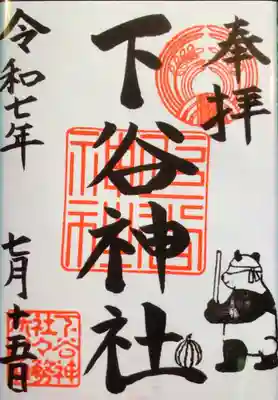 奉拝
下谷神社
令和七年
七月十五日
下谷神
社々務
所